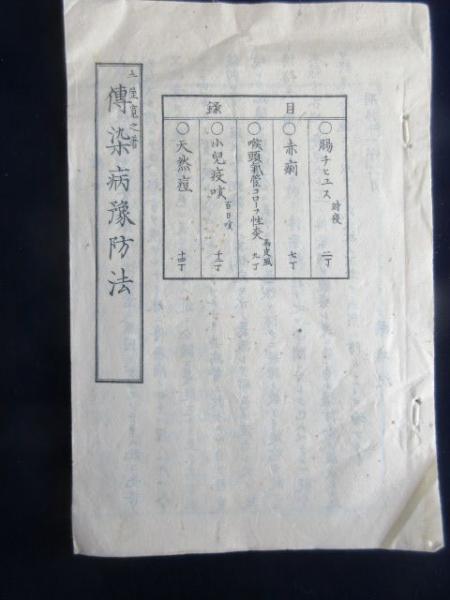 目録
○腸チヒユス 時疫 二丁
○赤痢 七丁
○喉頭氣管コローフ性炎 馬皮風 九丁
○小兒疫咳 百日咳 十二丁
○天然痘 十四丁
土屋寛之著
傳染病豫防法